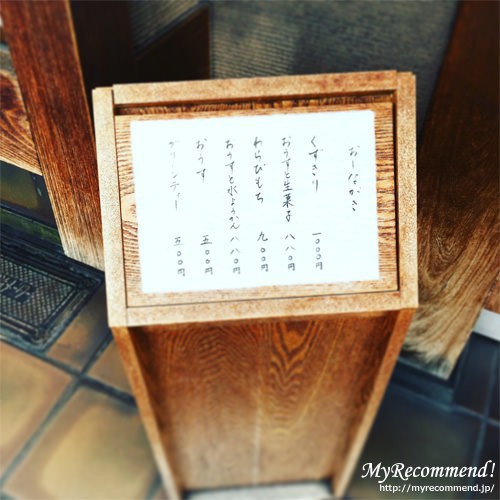 おーなかき
くずきり 一〇〇〇円
おうすと生菓子 八八〇円
わらびもち 九〇〇円
おうすと水ようかん 八八〇円
おうす 五〇〇円
グリンティー 五〇〇円
MyRecommend!
http://myrecommend.jp/